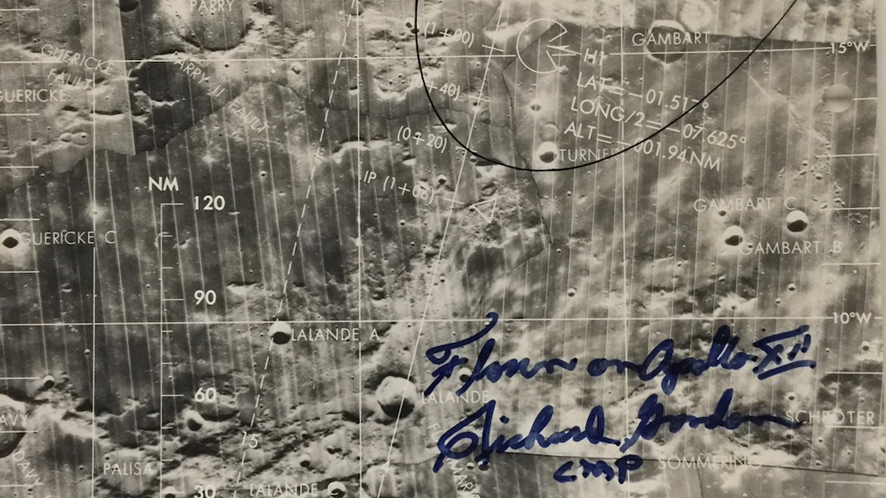 PARRY
(1+00)
GAMBART
15°W
GUERICKE
FAULT
PARRY
FAULT
GUERICKE
H1
LAT=-01.51°
LONG/2=-07.625°
ALT=-001.94NM
(0+20)
TURNER
NM
IP
120
GAMBART C
GUERICKE C
GAMBART B
90
10°W
LALANDE A
Flown on Apollo XII
60
LALANDE
Richard Gordon
SCHROTER
15
CMP
PALISA
SOMMERING
30
LALANDE